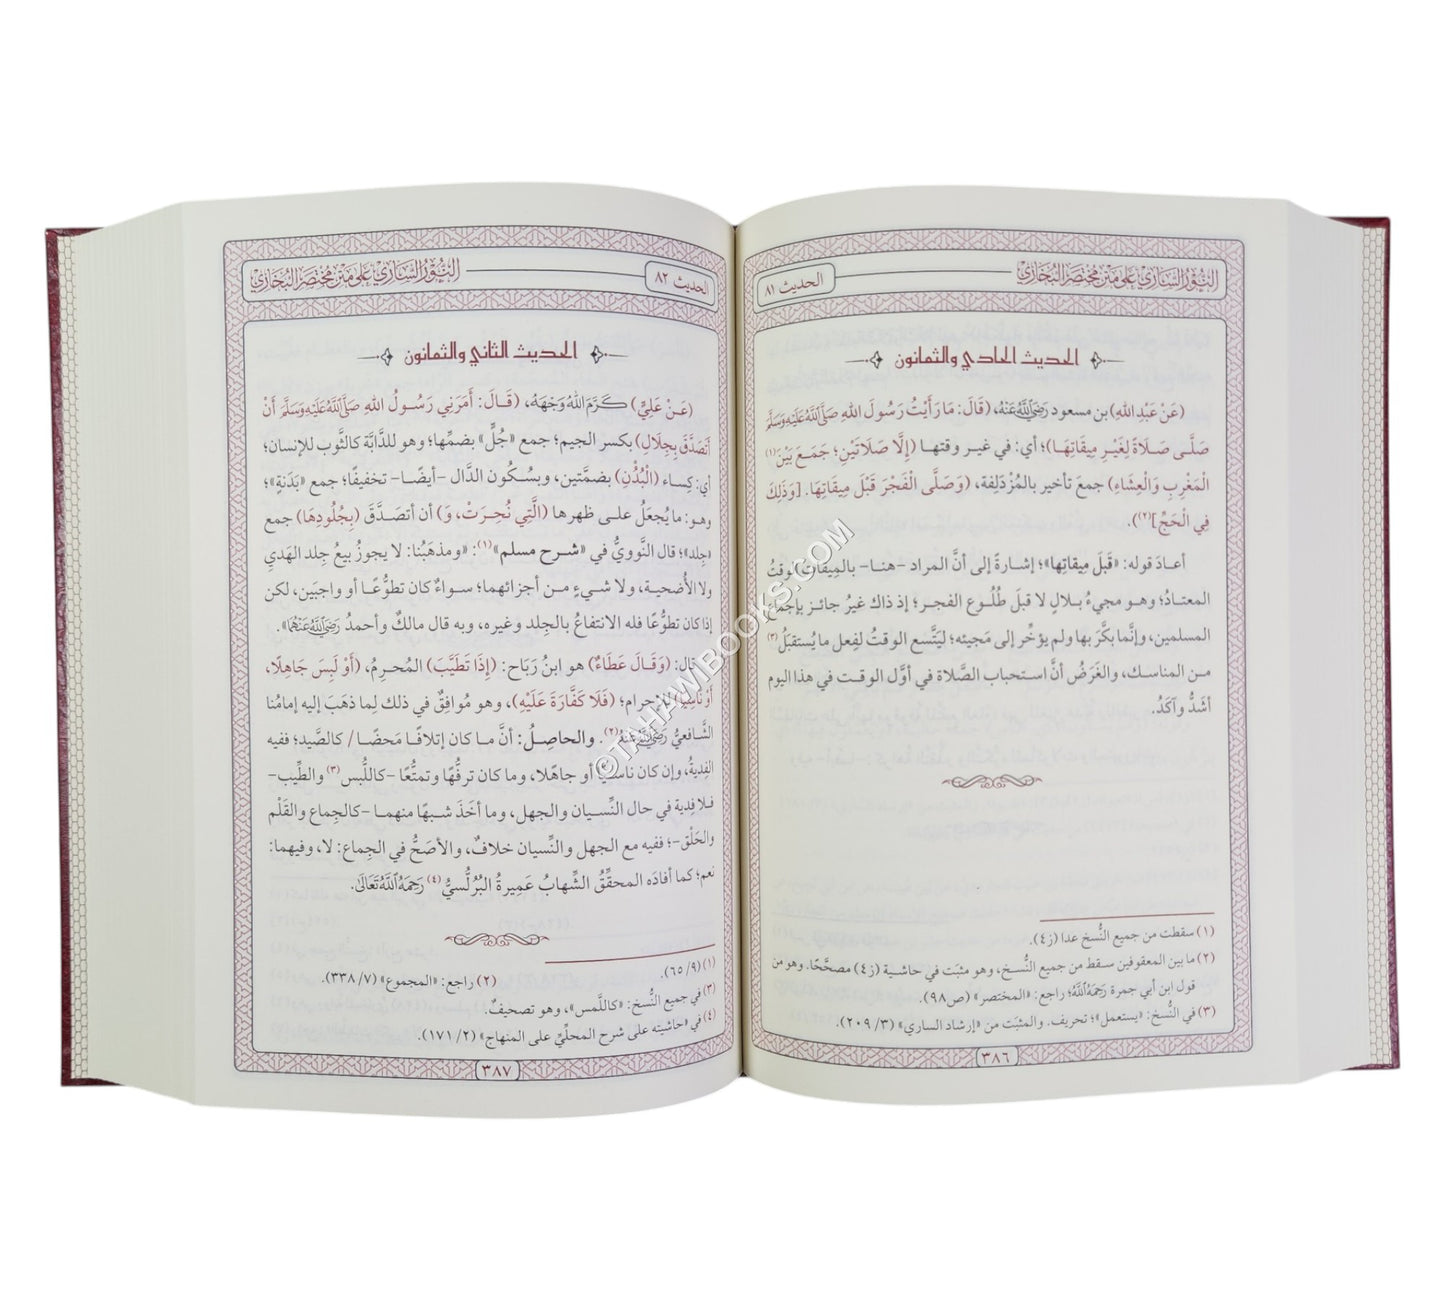 النُّورُ السَّارِي عَلَى مَتْنِ مُخْتَصَرِ الْبُخَارِي
الحديث ٨١
الحديث الحادي والثمانون
(عَنْ عَبْدِ اللهِ) بن مسعود رَضِيَ اللَّهُ عَنْهُ، (قَالَ: مَا رَأَيْتُ رَسُولَ اللهِ صَلَّى اللَّهُ عَلَيْهِ وَسَلَّمَ
صَلَّى صَلَاةً لِغَيْرِ مِيقَاتِهَا)؛ أي: في غير وقتها (إِلَّا صَلَاتَيْنِ؛ جَمَعَ بَيْنَ(١)
الْمَغْرِبِ وَالْعِشَاءِ) جمعَ تأخير بالمُزْدَلِفة، (وَصَلَّى الْفَجْرَ قَبْلَ مِيقَاتِهَا. [وَذَلِكَ
فِي الْحَجِّ](٢)).
أعادَ قوله: «قَبلَ مِيقاتِها»؛ إشارةً إلى أنَّ المراد -هنا- بالمِيقات الوقتُ
المعتادُ؛ وهو مجيءُ بلالٍ لا قبلَ طُلُوع الفجر؛ إذ ذاك غيرُ جائز بإجماع
المسلمين، وإنَّما بكَّرَ بها ولم يؤخِّر إلى مَجيئه؛ ليَتَّسع الوقتُ لفِعل ما يُستقبَلُ(٣)
من المناسك، والغَرَضُ أنَّ استحباب الصَّلاة في أوَّل الوقت في هذا اليوم
أشَدُّ وآكَدُ.
(١) سقطت من جميع النُّسخ عدا (ز٤).
(٢) ما بين المعقوفين سقط من جميع النُّسخ، وهو مثبَت في حاشية (ز٤) مصحَّحًا. وهو من
قول ابن أبي جمرة رَحِمَهُ اللَّهُ؛ راجع: «المختصر» (ص٩٨).
(٣) في النُّسخ: «يستعمل»؛ تحريف. والمثبَت من «إرشاد الساري» (٣/ ٢٠٩).
٣٨٦
الحديث ٨٢
النُّورُ السَّارِي عَلَى مَتْنِ مُخْتَصَرِ الْبُخَارِي
الحديث الثاني والثمانون
(عَنْ عَلِيٍّ) كَرَّمَ اللهُ وَجْهَهُ، (قَالَ: أَمَرَنِي رَسُولُ اللهِ صَلَّى اللَّهُ عَلَيْهِ وَسَلَّمَ أَنْ
أَتَصَدَّقَ بِجِلَالِ) بكسر الجيم؛ جمع «جُلٍّ» بضمِّها؛ وهو للدَّابَّة كالثَّوب للإنسان؛
أي: كِساء (الْبُدُنِ) بضمَّتين، وبسُكُون الدَّال -أيضًا- تخفيفًا؛ جمع «بَدَنةٍ»؛
وهو: ما يُجعَلُ على ظهرها (الَّتِي نُحِرَتْ، وَ) أن أتصَدَّقَ (بِجُلُودِهَا) جمع
«جِلد»؛ قال النَّوويُّ في «شرح مسلم»(١): «ومذهَبُنا: لا يجوزُ بيعُ جِلد الهَدي
ولا الأُضحية، ولا شيءٍ من أجزائهما؛ سواءٌ كان تطوُّعًا أو واجبَين، لكن
إذا كان تطوُّعًا فله الانتفاعُ بالجِلد وغيره، وبه قال مالكٌ وأحمدُ رَضِيَ اللَّهُ عَنْهُمَا».
قال: (وَقَالَ عَطَاءٌ) هو ابنُ رَبَاح: (إِذَا تَطَيَّبَ) المُحرِمُ، (أَوْ لَبِسَ جَاهِلًا،
أَوْ نَاسِيًا) للإحرام؛ (فَلَا كَفَّارَةَ عَلَيْهِ)، وهو مُوافِقٌ في ذلك لِما ذهَبَ إليه إمامُنا
الشَّافعيُّ رَضِيَ اللَّهُ عَنْهُ(٢). والحاصِلُ: أنَّ ما كان إتلافًا مَحضًا/ كالصَّيد؛ ففيه
الفِديةُ، وإن كان ناسيًا أو جاهلًا، وما كان ترفُّهًا وتمتُّعًا -كاللُّبس(٣) والطِّيب-
فلا فِدية في حال النِّسيان والجهل، وما أخَذَ شبهًا منهما -كالجِماع والقَلْم
والحَلْق-؛ ففيه مع الجهل والنِّسيان خلافٌ، والأصَحُّ في الجِماع: لا، وفيهما:
نعم؛ كما أفادَه المحقِّقُ الشِّهابُ عَمِيرةُ البُرُلُّسيُّ(٤) رَحِمَهُ اللَّهُ تَعَالَى.
(١) (٩/ ٦٥). (٢) راجع: «المجموع» (٧/ ٣٣٨).
(٣) في جميع النُّسخ: «كاللَّمس»، وهو تصحيفٌ.
(٤) في «حاشيته على شرح المحلِّيِّ على المنهاج» (٢/ ١٧١).
٣٨٧
©TAHAWIBOOKS.COM